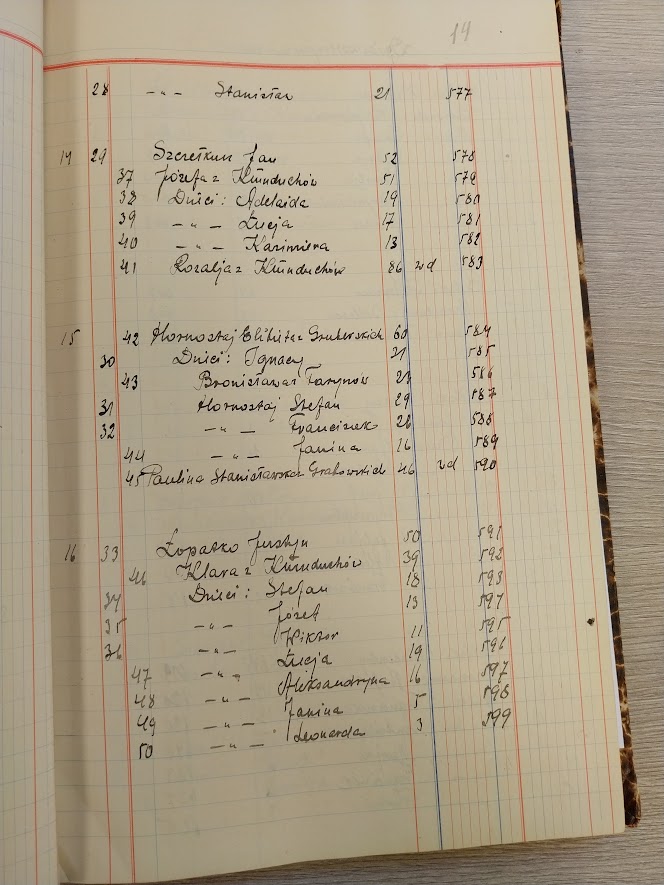 14
28 -"- Stanisław 21 577
14 29 Szczetkun Jan 52 578
37 Józefa z Kunduchów 51 579
38 Dzieci: Adelaida 19 580
39 -"- Łucja 17 581
40 -"- Kazimiera 13 582
41 Rozalja z Kunduchów 86 wd 583
15 42 Hornostaj Elżbieta z 60 584
30 Dzieci: Ignacy 31 585
43 Bronisława z 23 586
31 Hornostaj Stefan 29 587
32 -"- Franciszek 26 588
44 -"- Janina 16 589
45 Paulina Stanisławska z Grabowskich 46 wd 590
16 33 Łopatko Justyn 50 591
46 Klara z Kunduchów 39 592
34 Dzieci: Stefan 18 593
35 -"- Józef 13 594
36 -"- Wiktor 11 595
47 -"- Łucja 19 596
48 -"- Aleksandryna 16 597
49 -"- Janina 5 598
50 -"- Leonarda 3 599